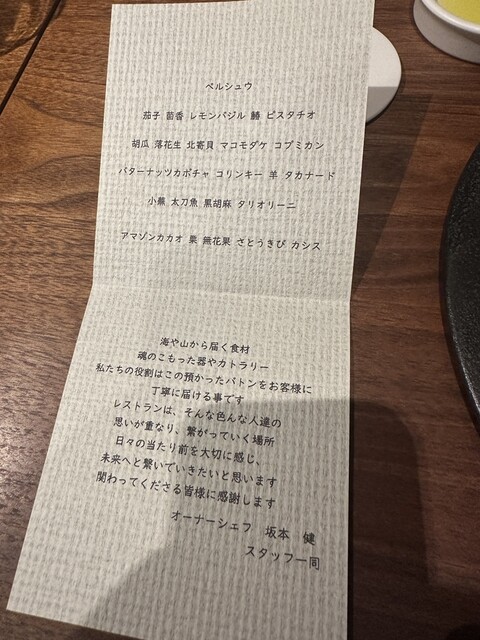 ペルシュウ
茄子 茴香 レモンバジル 鰆 ピスタチオ
胡瓜 落花生 北寄貝 マコモダケ コブミカン
バターナッツカボチャ コリンキー 羊 タカナード
小蕪 太刀魚 黒胡麻 タリオリーニ
アマゾンカカオ 栗 無花果 さとうきび カシス
海や山から届く食材
魂のこもった器やカトラリー
私たちの役割はこの預かったバトンをお客様に
丁寧に届ける事です
レストランは、そんな色んな人達の
思いが重なり、繋がっていく場所
日々の当たり前を大切に感じ、
未来へと繋いでいきたいと思います
関わってくださる皆様に感謝します
オーナーシェフ 坂本 健
スタッフ一同